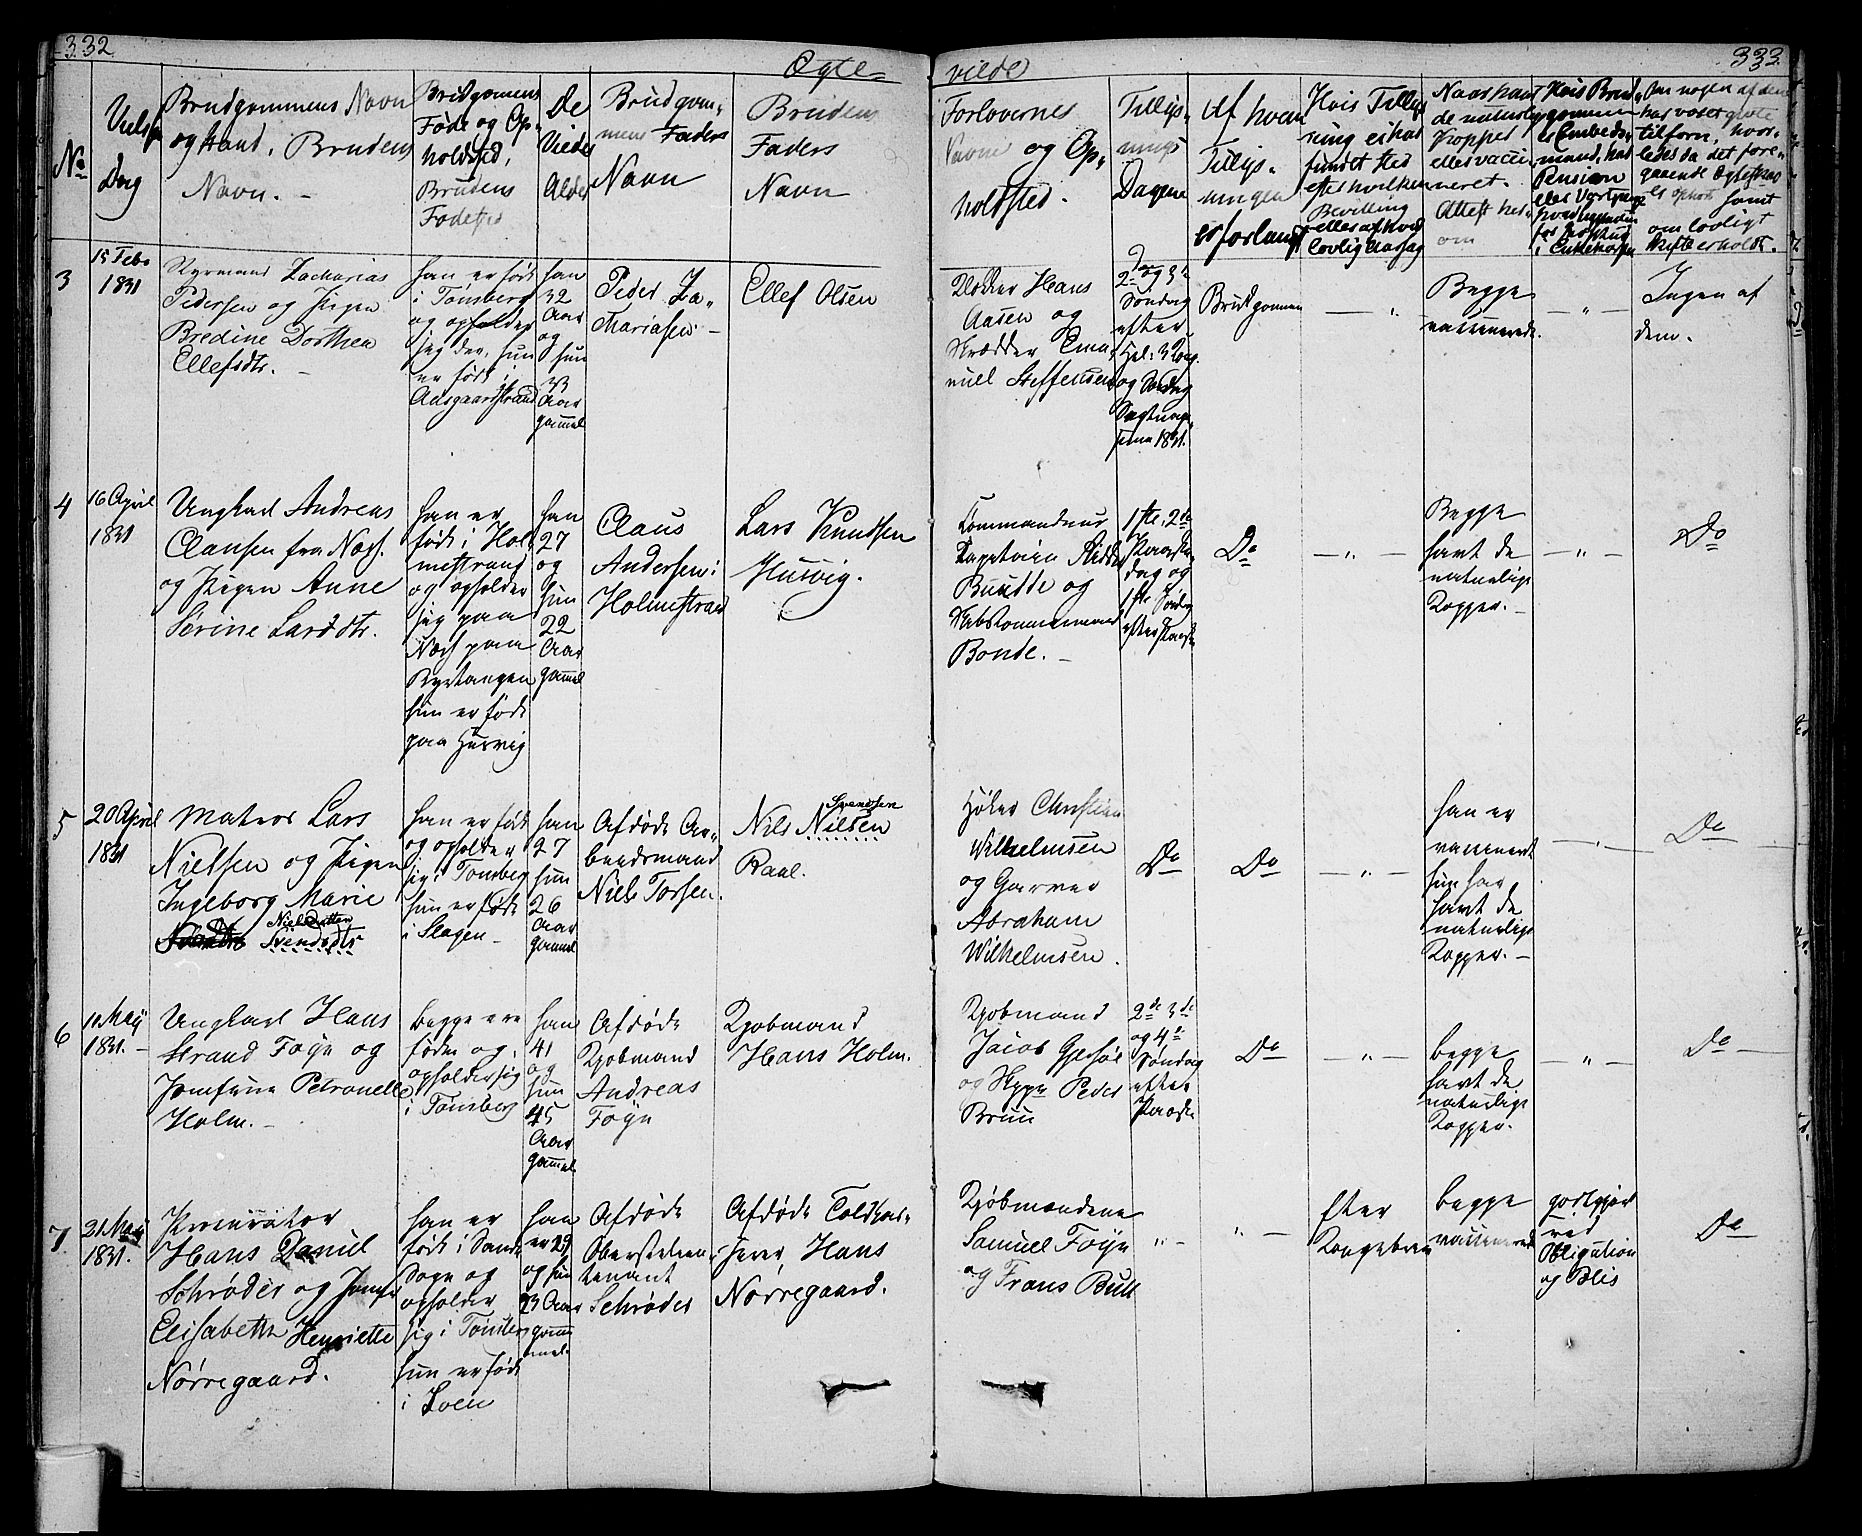 332
Ægte-
vilde
333.
No
Vielses
Dag
Brudgommens Navn
og Stand, Brudens
Navn. -
Brudgomens
Føde og Op-
holdsted,
Brudens
Fødested
De
Viedes
Alder
Brudgom-
mens Faders
Navn
Brudens
Faders
Navn
Forlovernes
Navne og Op-
holdsted.
Tillys-
nings
Dagene
Af hvem
Tillys-
ningen
er forlangt
Hvis Tillys
ning ei har
fundet sted
efter hvilken
Bevilling
eller af hvad
lovlig Aarsag
Naar havt
de naturlige
Kopper
eller vacci-
neret.
Attest her-
om
Hvis Brud-
gommen
er Embeds-
mand, har
Pension
Om nogen af dem
har været gifte
tilforn, hvor-
ledes da det fore-
gaaende Ægteskab
er ophørt samt
om lovligt
Skifte erholdt.
3
15 Febr
1831
Styrmand Zacharias
Pedersen og Pigen
Bredine Dorthea
Ellefsdtr. -
han er født
i Tønsberg
og opholder
sig der, hun
er født i
Aasgaardstrand
han
32
Aar
og
hun
33
Aar
gammel
Peder Za-
chariasen. -
Ellef Olsen
Klokker Hans
Aasen og
Skrædder Ema-
nuel Steffensen
2den og 3die
Søndag
efter
Hel: 3 Kong.
og Søndag
1831.
Brudgommen
- „ -
Begge
vaccinerede.
- „ -
Ingen af
dem.
4
16 April
1831
Ungkarl Andreas
Clausen fra Næs.
og Pigen Anne
Serine Larsdtr.
han er
født i Hol-
mestrand
og opholder
sig paa
Næs paa
hun er født
paa Husvig
han
27
og
hun
22
Aar
gammel
Claus
Andersen i
Holmestrand
Lars Knudsen
Husvig.
Commandeur
Capitain
og
Skibskommemand
Bonde. -
1ste, 2de
Paaske
dag og
1ste Søndag
efter Paaske
Do
- „ -
Begge
havt de
naturlige
Kopper. -
- „ -
Do
5
20 April
1831
Matros Lars
Nielsen og Pigen
Ingeborg Marie
Nielsdatter
Svendsdtr
han er født
og opholder
sig i Tønsberg
hun er født
i Slagen -
han
27
hun
26
Aar
gammel
Afdøde Ar-
beidsmand
Niels Torsen.
Svendsen
Nils Nilsen
Raal.
Høker Christian
Wilhelmsen
og Garver
Abraham
Wilhelmsen.
Do
Do
- „ -
han er
vaccineret
hun har
havt de
naturlige
Kopper. -
- „ -
Do
6
10 Maij
1831. -
Ungkarl Hans
Strand Føyn og
Jomfrue Petronelle
Holm. -
begge ere
fødte og
opholder sig
i Tønsberg
han
41
og
hun
45
Aar
gammel
Afdøde
Kjøbmand
Andreas
Føyn
Kjøbmand
Hans Holm.
Kjøbmand
Jacob Gjersøe
og Skypr Peder
Bruu
2de 3de
og 4de
Søndag
efter
Paaske
Do
- „ -
begge
havt de
naturlige
Kopper.
- „ -
Do -
7
21 Maij
1831.
Procurator
Hans Daniel
Schrøder og Jomfr
Elisabeth Henriette
Nørregaard.
han er
født i Sande
Sogn og
opholder
sig i Tønsberg
hun er født
i Loen
han
er 29
og hun
23 Aar
gamm
mel.
Afdøde
Oberstlieu-
tenant
Schrøder
Afdøde Toldkas-
serer, Hans
Nørregaard.
Kjøbmændene
Samuel Føyn
og Frans Bull
„ -
„ -
Efter
Kongebrev
begge
vaccinerede
godtgjort
ved
Obligation
og Bevis
Do